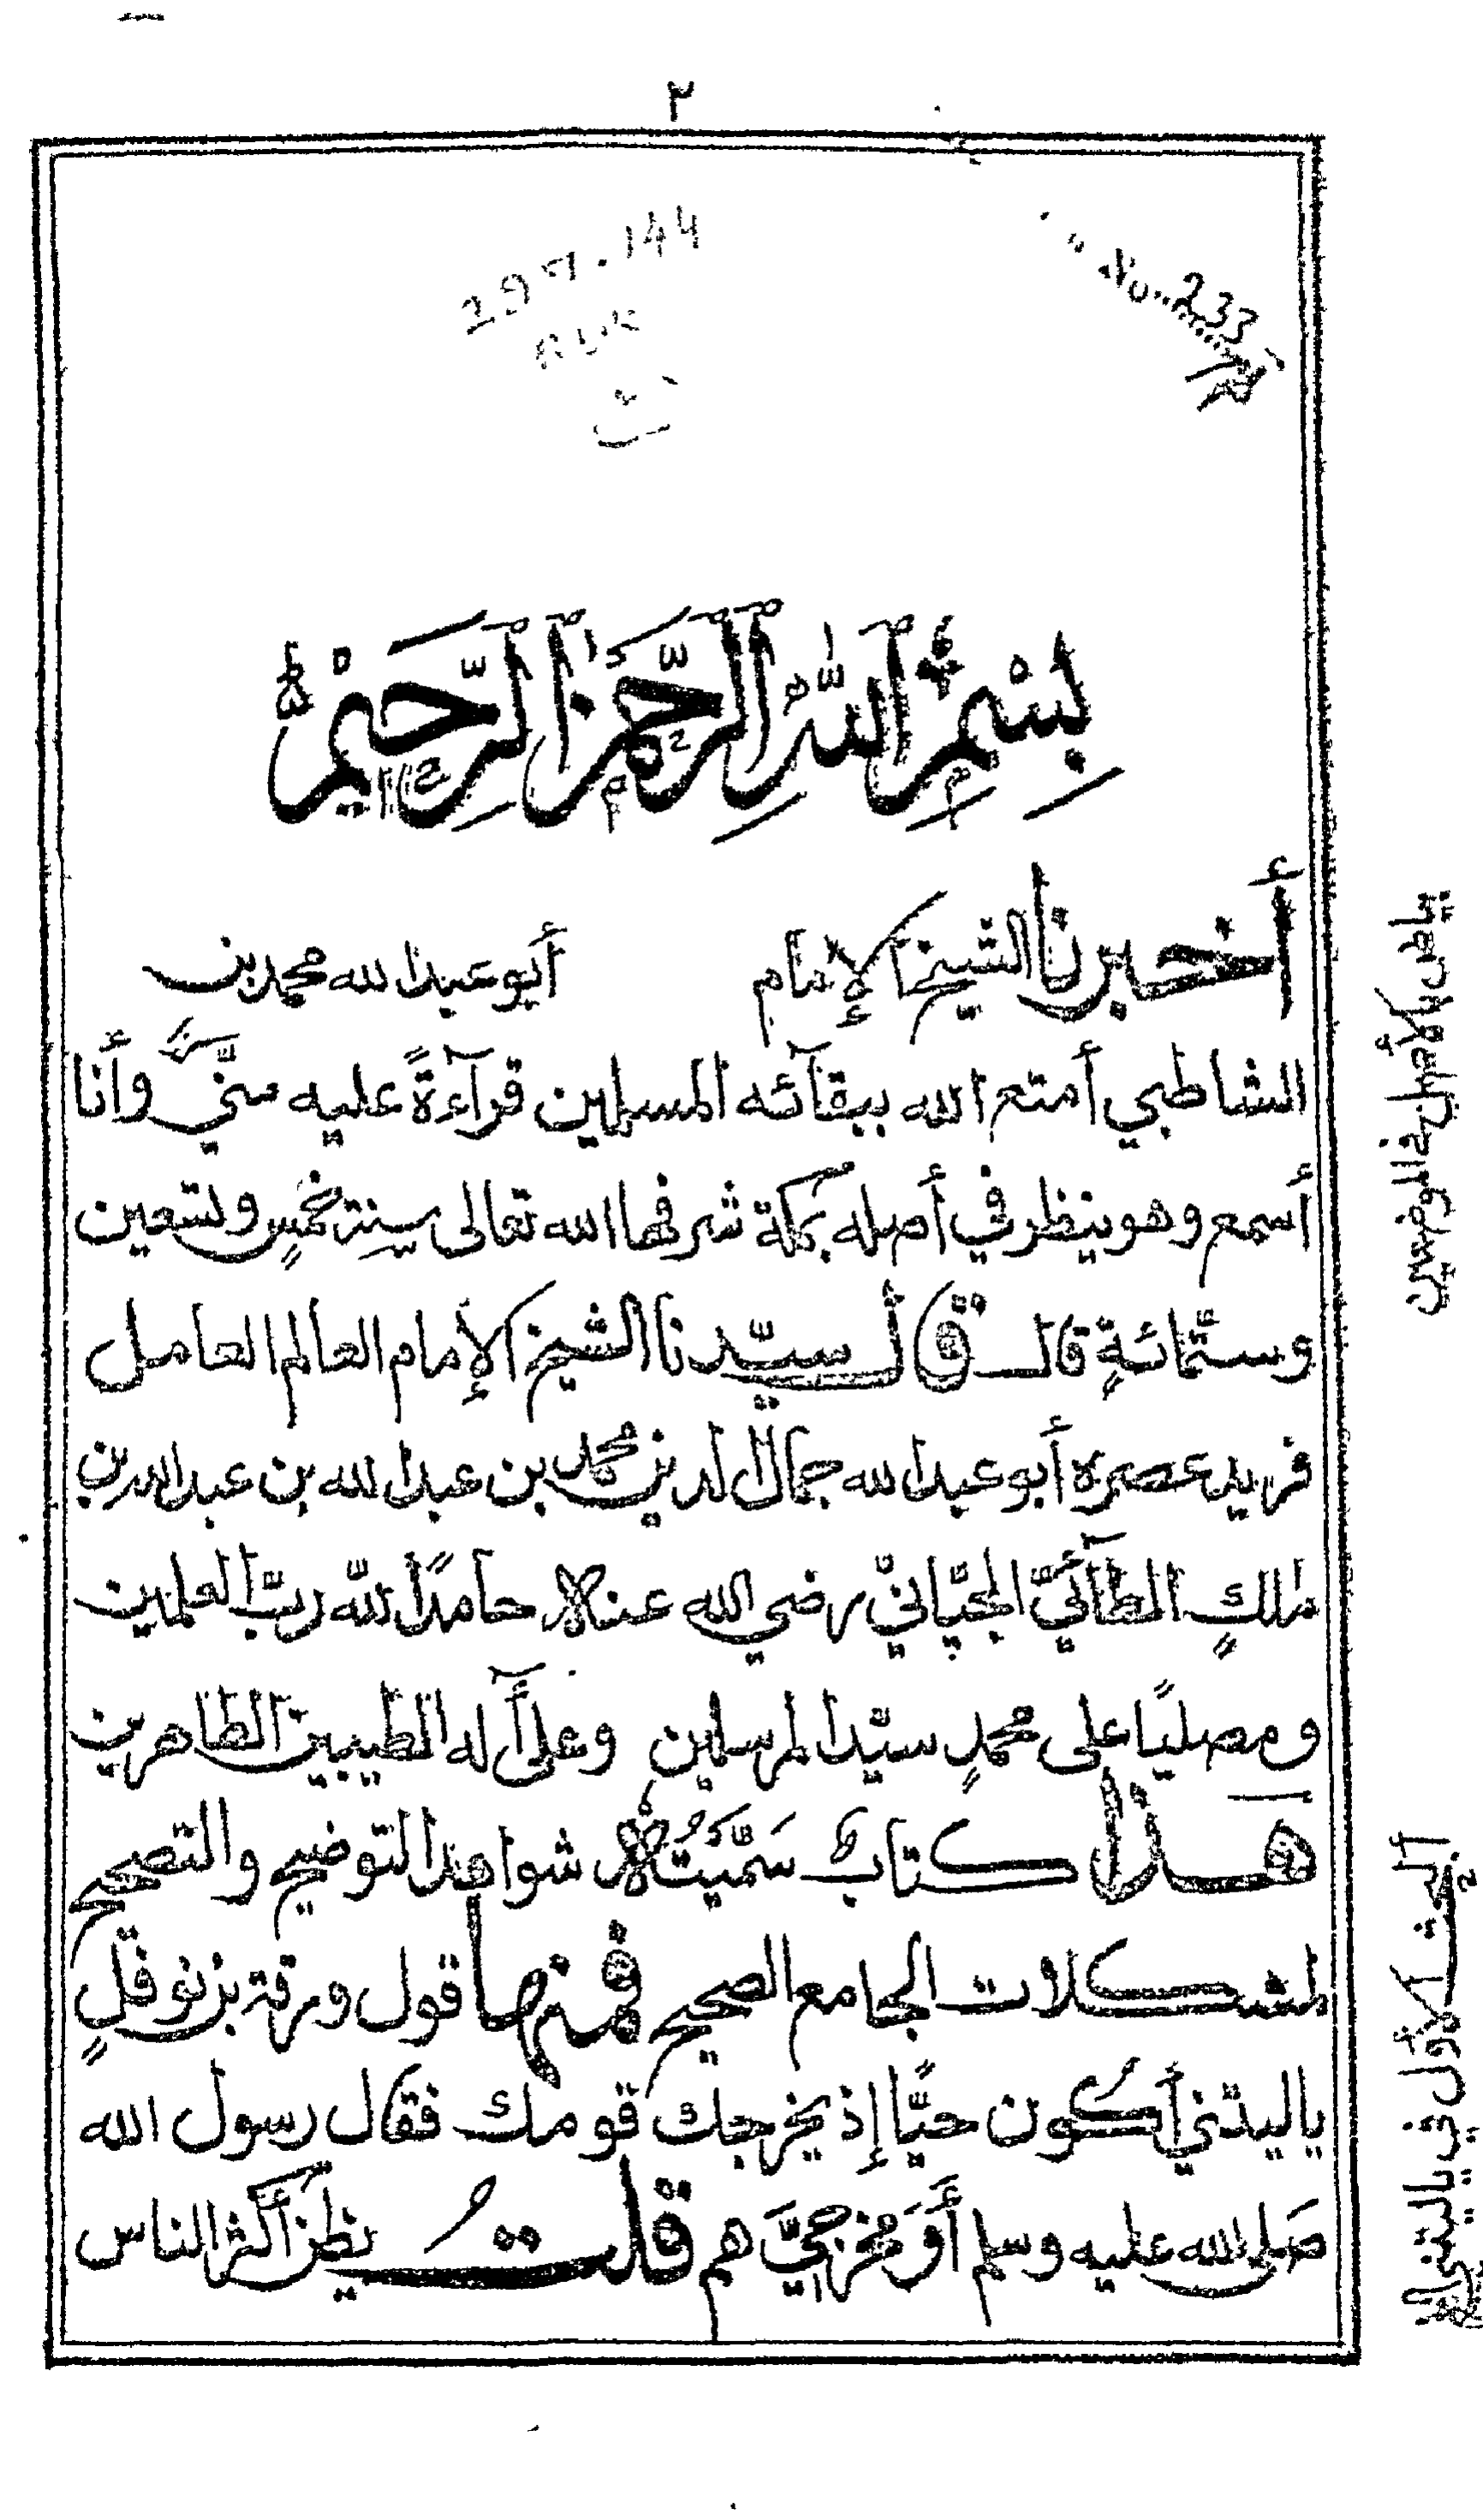 ٢
No. 233
بِسْمِ اللّٰهِ الرَّحْمٰنِ الرَّحِيْمِ
أخبرنا الشيخ الإمام أبو عبد الله محمد بن
الشاطبي أمتع الله ببقآئه المسلمين قرآءةً عليه وأنا
أسمع وهو ينظر في أصله بمكة شرفها الله تعالى سنة خمسٍ وتسعين
وستّمائةٍ قال قال سيّدنا الشيخ الإمام العالم العامل
فريد عصره أبو عبد الله جمال الدين محمد بن عبد الله بن عبد الله بن
مالكٍ الطآئيّ الجيّانيّ رضي الله عنه حامدًا لله ربّ العلمين
ومصليًا على محمدٍ سيّد المرسلين وعلى آله الطيبين الطاهرين
هذا كتابٌ سَمَّيْتُه شواهد التوضيح والتصحيح
لمشكلات الجامع الصحيح فمنها قول ورقة بن نوفلٍ
يا ليتني أكون حيًّا إذ يخرجك قومك فقال رسول الله
صَلى الله عليه وسلم أَوَ مخرجيَّ هم قلتُ يظن أكثر الناس
البحث الأول في يا ليتني الخ